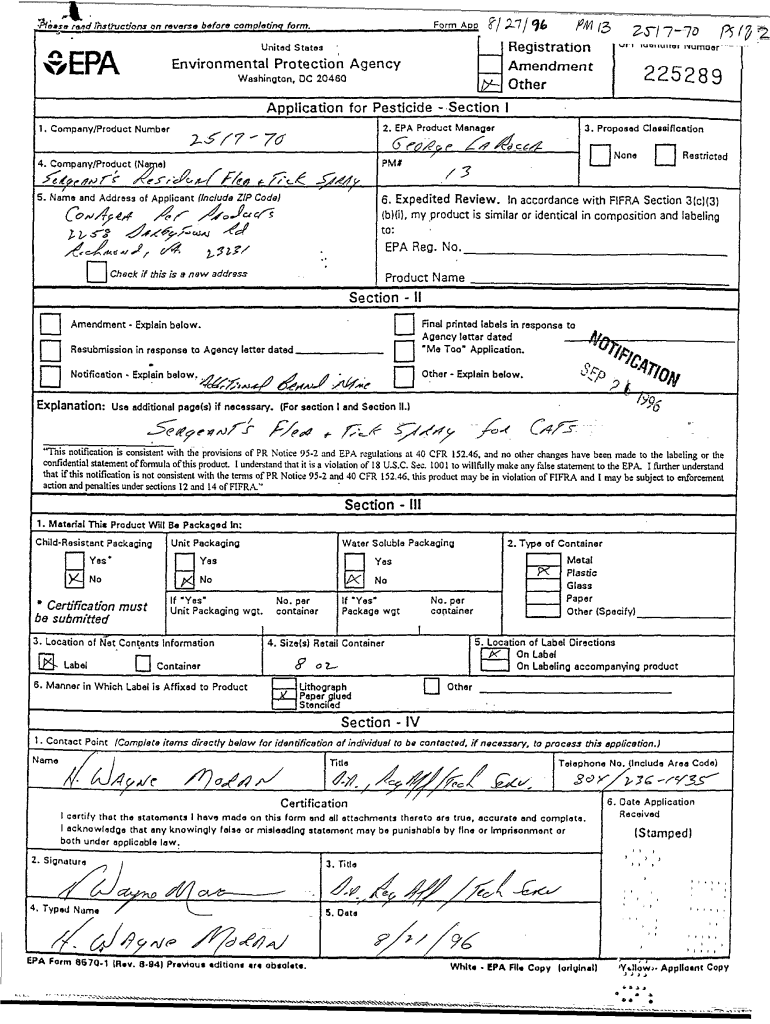 Please read instructions on reverse before completing form.
Form App 8/27/96 PM 13 2517-70 PS 1 8 2
EPA
United States
Environmental Protection Agency
Washington, DC 20460
Registration
Amendment
Other
OPP Identifier Number
225289
Application for Pesticide - Section I
1. Company/Product Number
2517-70
2. EPA Product Manager
George LaRocca
3. Proposed Classification
None
Restricted
4. Company/Product (Name)
Sergeant's Residual Flea + Tick Spray
PM#
13
5. Name and Address of Applicant (Include ZIP Code)
ConAgra Pet Products
2258 Darbytown Rd
Richmond, VA. 23231
Check if this is a new address
6. Expedited Review. In accordance with FIFRA Section 3(c)(3)
(b)(i), my product is similar or identical in composition and labeling
to:
EPA Reg. No.
Product Name
Section - II
Amendment - Explain below.
Resubmission in response to Agency letter dated
Notification - Explain below. Additional Brand Name
Final printed labels in response to
Agency letter dated
"Me Too" Application.
Other - Explain below.
NOTIFICATION
SEP 1996
Explanation: Use additional page(s) if necessary. (For section I and Section II.)
Sergeant's Flea + Tick Spray for Cats
"This notification is consistent with the provisions of PR Notice 95-2 and EPA regulations at 40 CFR 152.46, and no other changes have been made to the labeling or the
confidential statement of formula of this product. I understand that it is a violation of 18 U.S.C. Sec. 1001 to willfully make any false statement to the EPA. I further understand
that if this notification is not consistent with the terms of PR Notice 95-2 and 40 CFR 152.46, this product may be in violation of FIFRA and I may be subject to enforcement
action and penalties under sections 12 and 14 of FIFRA."
Section - III
1. Material This Product Will Be Packaged In:
Child-Resistant Packaging
Yes*
No
* Certification must
be submitted
Unit Packaging
Yes
No
If "Yes"
Unit Packaging wgt.
No. per
container
Water Soluble Packaging
Yes
No
If "Yes"
Package wgt
No. per
container
2. Type of Container
Metal
Plastic
Glass
Paper
Other (Specify)
3. Location of Net Contents Information
Label
Container
4. Size(s) Retail Container
8 oz
5. Location of Label Directions
On Label
On Labeling accompanying product
6. Manner in Which Label is Affixed to Product
Lithograph
Paper glued
Stenciled
Other
Section - IV
1. Contact Point (Complete items directly below for identification of individual to be contacted, if necessary, to process this application.)
Name
H. Wayne Moran
Title
Dir., Reg Aff/Tech Serv.
Telephone No. (Include Area Code)
804/236-1435
Certification
I certify that the statements I have made on this form and all attachments thereto are true, accurate and complete.
I acknowledge that any knowingly false or misleading statement may be punishable by fine or imprisonment or
both under applicable law.
6. Date Application
Received
(Stamped)
2. Signature
H Wayne Moran
3. Title
Dir, Reg Aff / Tech Serv
4. Typed Name
H. Wayne Moran
5. Date
8/21/96
EPA Form 8570-1 (Rev. 8-94) Previous editions are obsolete.
White - EPA File Copy (original)
Yellow - Applicant Copy